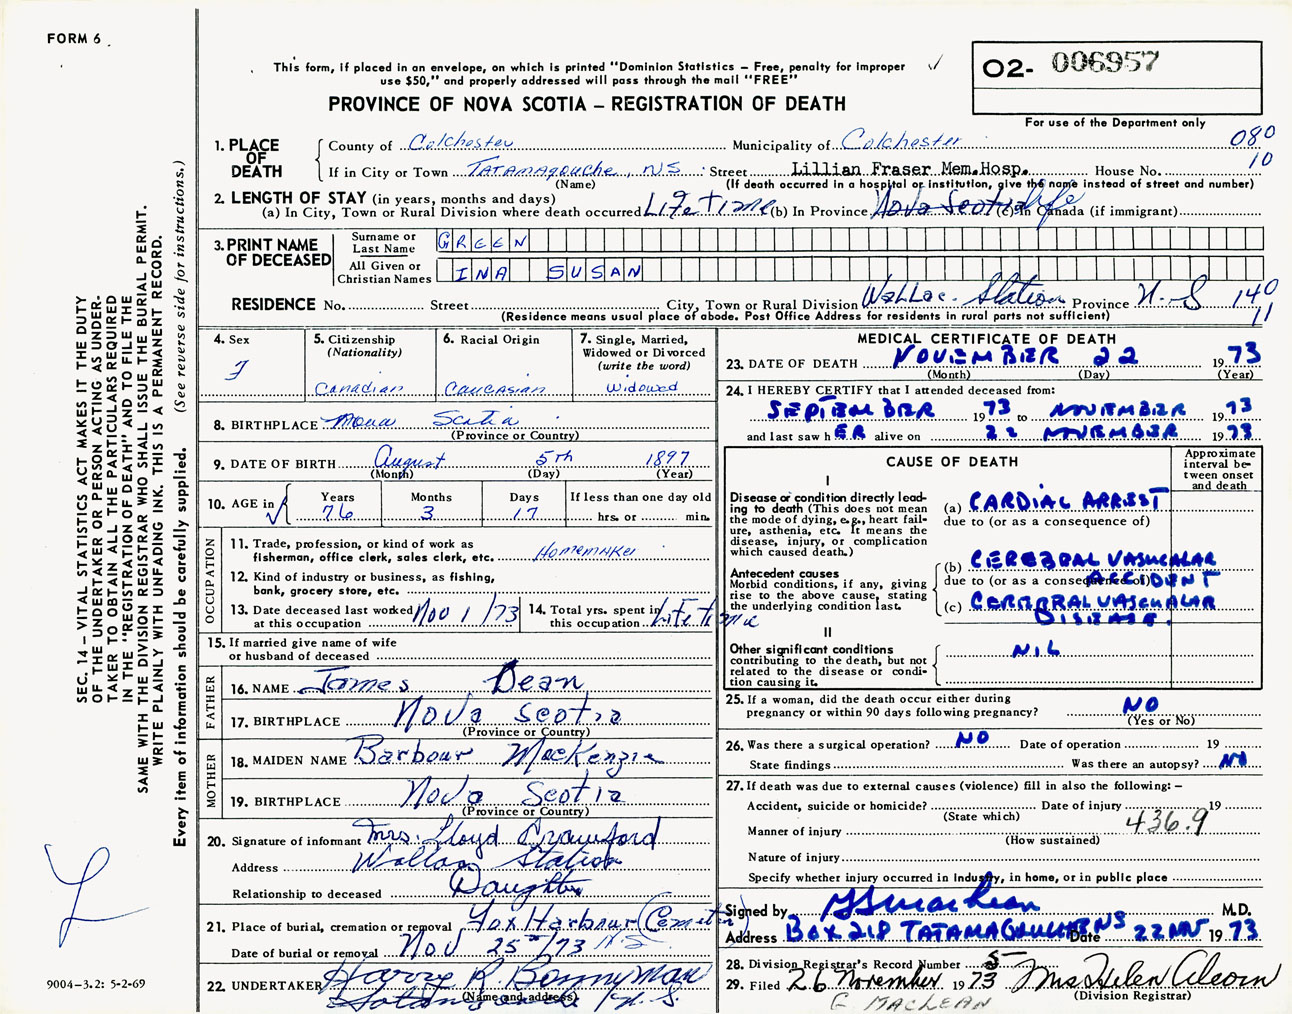 FORM 6
This form, if placed in an envelope, on which is printed "Dominion Statistics – Free, penalty for improper
use $50," and properly addressed will pass through the mail "FREE"
O2- 006957
PROVINCE OF NOVA SCOTIA – REGISTRATION OF DEATH
For use of the Department only
1. PLACE OF DEATH
County of Colchester Municipality of Colchester 080
If in City or Town Tatamagouche, N.S. Street Lillian Fraser Mem.Hosp. House No. 10
(Name) (If death occurred in a hospital or institution, give the name instead of street and number)
2. LENGTH OF STAY (in years, months and days)
(a) In City, Town or Rural Division where death occurred Lifetime (b) In Province Nova Scotia life (c) In Canada (if immigrant)
3. PRINT NAME OF DECEASED
Surname or Last Name GREEN
All Given or Christian Names INA SUSAN
RESIDENCE No. Street City, Town or Rural Division Wallace Station Province N.S 140
11
(Residence means usual place of abode. Post Office Address for residents in rural parts not sufficient)
4. Sex
F
5. Citizenship
(Nationality)
Canadian
6. Racial Origin
Caucasian
7. Single, Married,
Widowed or Divorced
(write the word)
Widowed
8. BIRTHPLACE Nova Scotia
(Province or Country)
9. DATE OF BIRTH August 5th 1897
(Month) (Day) (Year)
10. AGE in
Years Months Days If less than one day old
76 3 17 hrs. or min.
OCCUPATION
11. Trade, profession, or kind of work as
fisherman, office clerk, sales clerk, etc. Homemaker
12. Kind of industry or business, as fishing,
bank, grocery store, etc.
13. Date deceased last worked
at this occupation Nov 1/73
14. Total yrs. spent in
this occupation Lifetime
15. If married give name of wife
or husband of deceased
FATHER
16. NAME James Dean
17. BIRTHPLACE Nova Scotia
(Province or Country)
MOTHER
18. MAIDEN NAME Barbour MacKenzie
19. BIRTHPLACE Nova Scotia
(Province or Country)
20. Signature of informant Mrs. Lloyd Crawford
Address Wallace Station
Relationship to deceased Daughter
21. Place of burial, cremation or removal Fox Harbour (Cemetery) N.S
Date of burial or removal Nov 25th/73
22. UNDERTAKER Harry R. Bonnyman
(Name and address) N.S.
MEDICAL CERTIFICATE OF DEATH
23. DATE OF DEATH NOVEMBER 22 1973
(Month) (Day) (Year)
24. I HEREBY CERTIFY that I attended deceased from:
SEPTEMBER 1973 to NOVEMBER 1973
and last saw hER alive on 22 NOVEMBER 1973
CAUSE OF DEATH
Approximate
interval be-
tween onset
and death
I
Disease or condition directly lead-
ing to death (This does not mean
the mode of dying, e.g., heart fail-
ure, asthenia, etc. It means the
disease, injury, or complication
which caused death.)
(a) CARDIAC ARREST
due to (or as a consequence of)
Antecedent causes
Morbid conditions, if any, giving
rise to the above cause, stating
the underlying condition last.
(b) CEREBRAL VASCULAR ACCIDENT
due to (or as a consequence of)
(c) CEREBRAL VASCULAR
DISEASE.
II
Other significant conditions
contributing to the death, but not
related to the disease or condi-
tion causing it.
NIL
25. If a woman, did the death occur either during
pregnancy or within 90 days following pregnancy? NO
(Yes or No)
26. Was there a surgical operation? NO Date of operation 19
State findings Was there an autopsy? NO
27. If death was due to external causes (violence) fill in also the following: –
Accident, suicide or homicide? Date of injury 19
(State which)
Manner of injury 436.9
(How sustained)
Nature of injury
Specify whether injury occurred in Industry, in home, or in public place
Signed by M.D.
Address BOX 218 TATAMAGOUCHE NS Date 22 NOV 1973
28. Division Registrar's Record Number 5
29. Filed 26 November 1973 Mrs Helen
(Division Registrar)
G MACLEAN
SEC. 14 – VITAL STATISTICS ACT MAKES IT THE DUTY
OF THE UNDERTAKER OR PERSON ACTING AS UNDER-
TAKER TO OBTAIN ALL THE PARTICULARS REQUIRED
IN THE "REGISTRATION OF DEATH" AND TO FILE THE
SAME WITH THE DIVISION REGISTRAR WHO SHALL ISSUE THE BURIAL PERMIT.
WRITE PLAINLY WITH UNFADING INK. THIS IS A PERMANENT RECORD.
Every item of information should be carefully supplied. (See reverse side for instructions.)
9004-3.2: 5-2-69